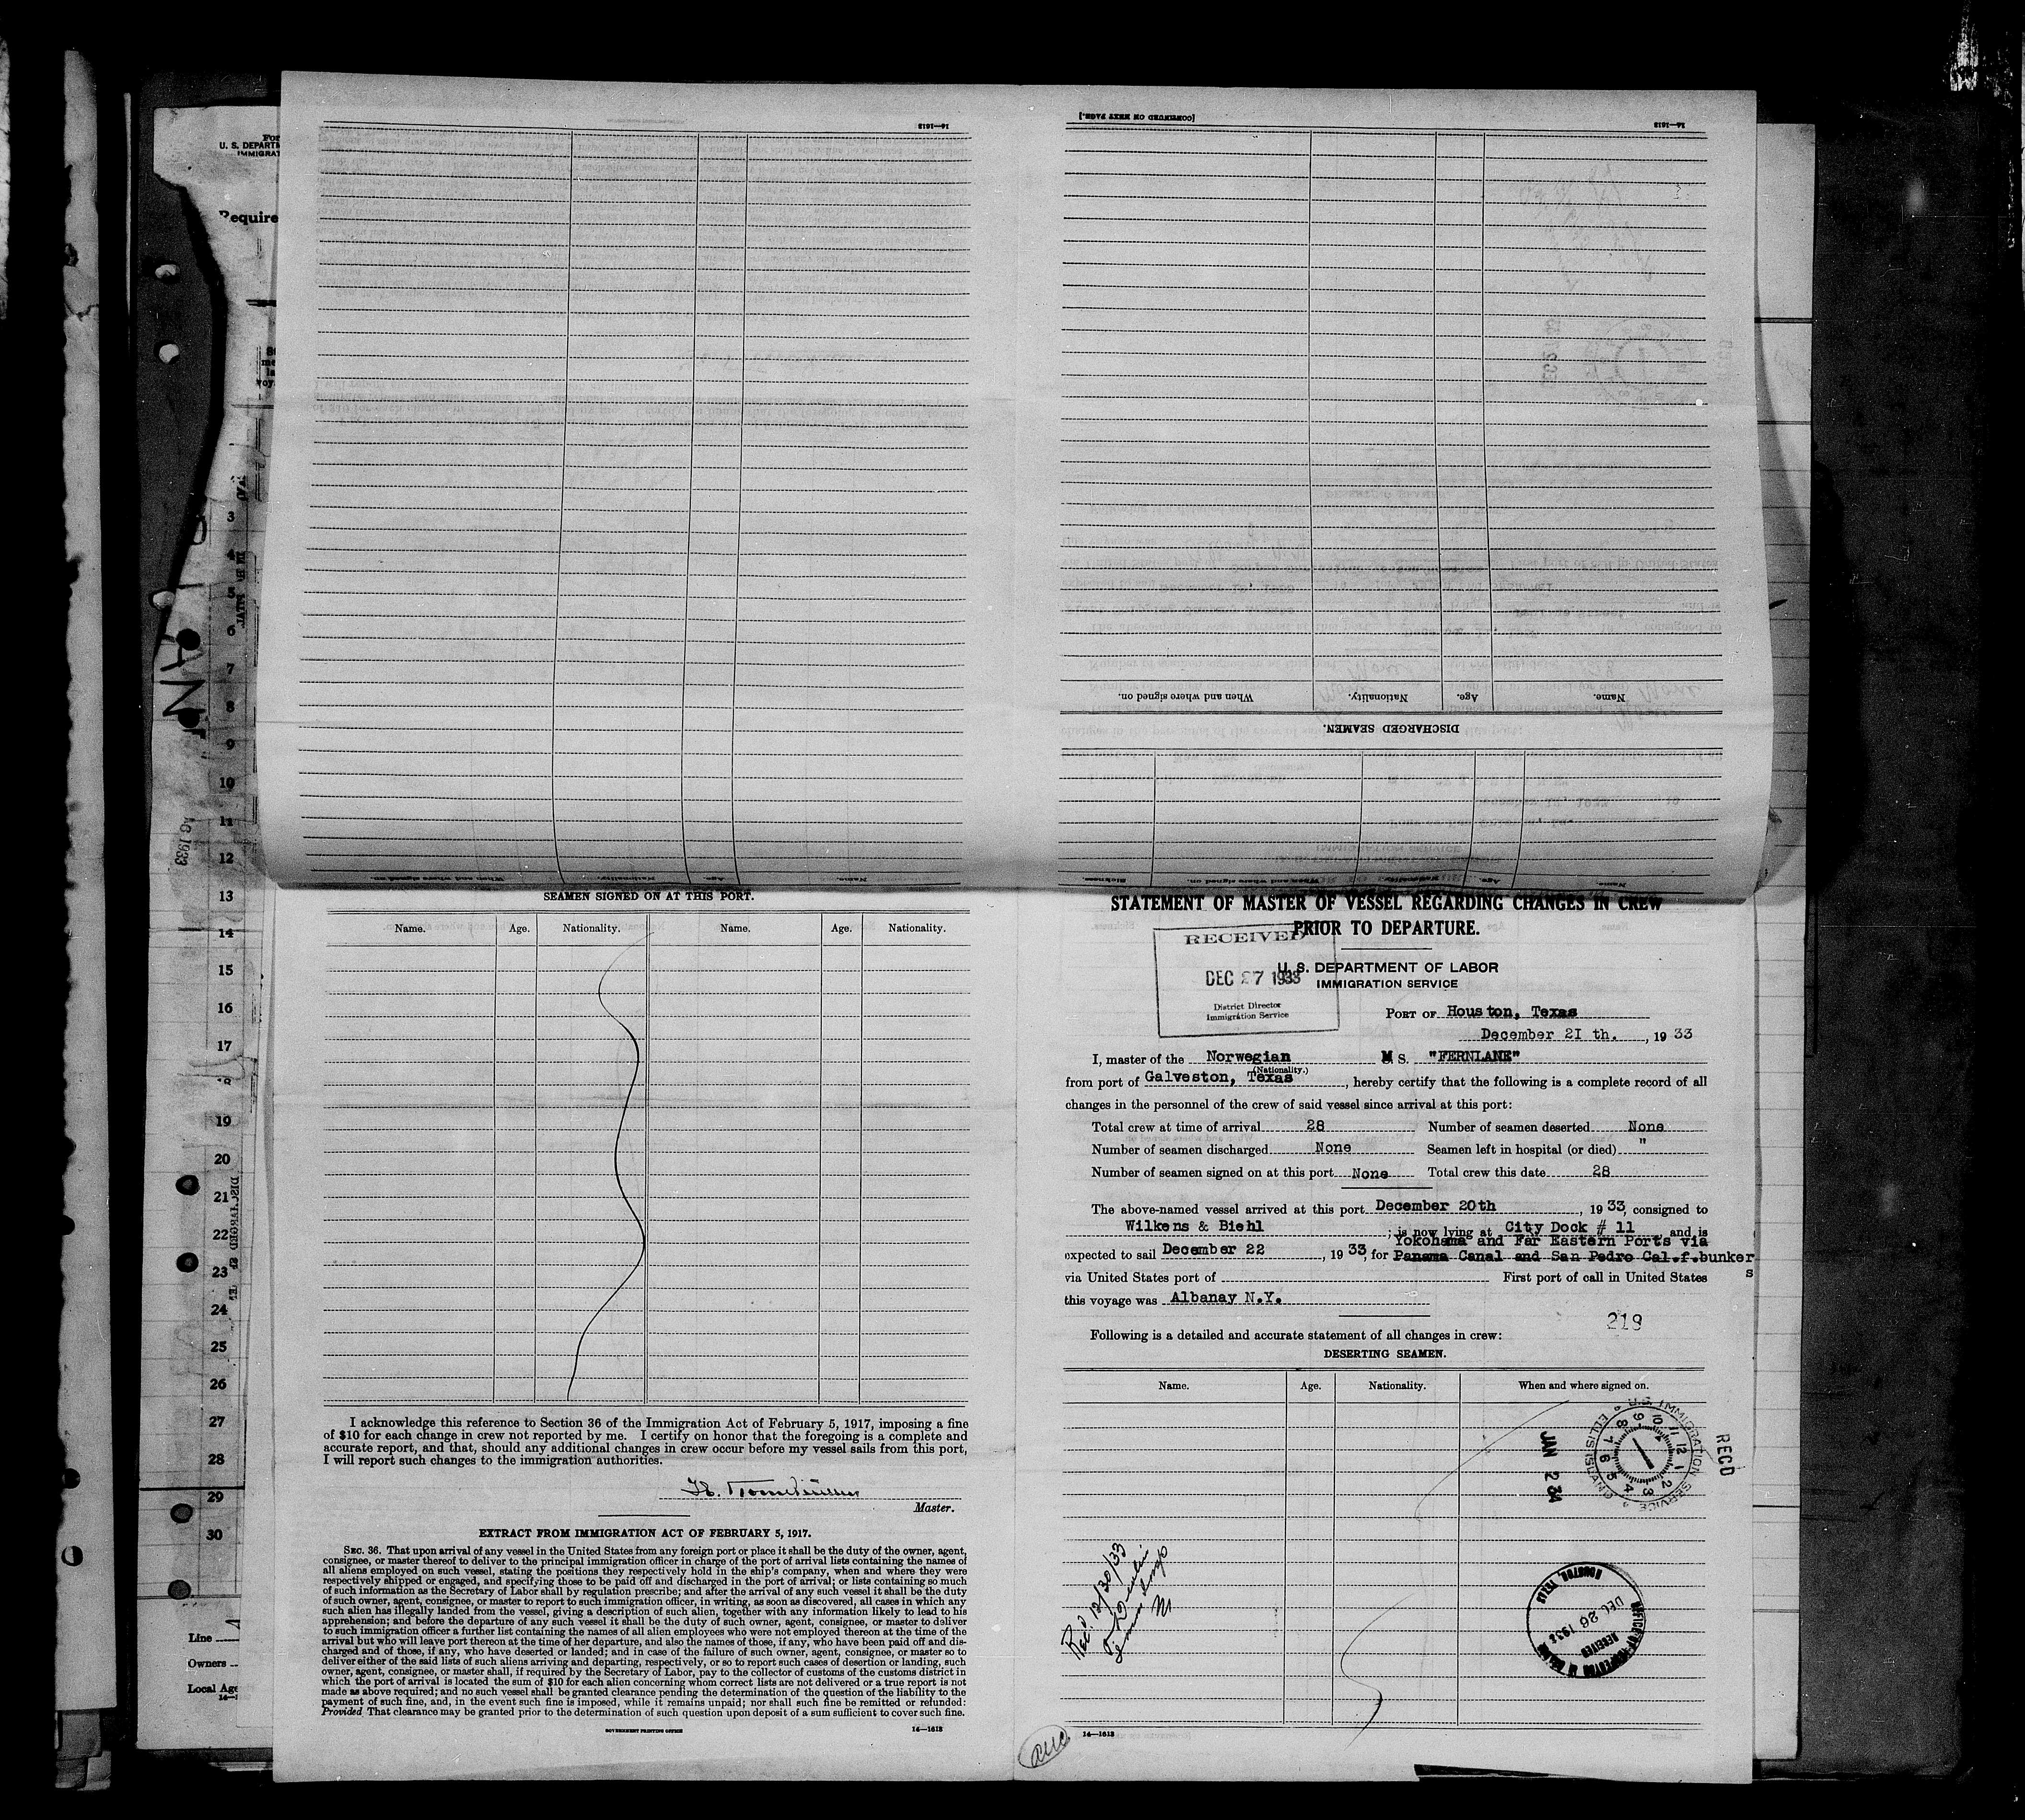 For
U. S. DEPARTM
IMMIGRAT
Require
3
4
5
6
7
8
9
10
11
12
13
14
15
16
17
19
20
21
22
23
24
25
26
27
28
29
30
Line
Owners
Local Age
16—1613
[CONTINUED ON NEXT PAGE.]
16—1613
When and where signed on.
Nationality.
Age.
Name.
DISCHARGED SEAMEN.
When and where signed on.
Nationality.
Age.
Name.
Sickness.
When and where signed on.
Nationality.
Age.
Name.
SEAMEN SIGNED ON AT THIS PORT.
Name. Age. Nationality. Name. Age. Nationality.
I acknowledge this reference to Section 36 of the Immigration Act of February 5, 1917, imposing a fine
of $10 for each change in crew not reported by me. I certify on honor that the foregoing is a complete and
accurate report, and that, should any additional changes in crew occur before my vessel sails from this port,
I will report such changes to the immigration authorities.
Master.
EXTRACT FROM IMMIGRATION ACT OF FEBRUARY 5, 1917.
SEC. 36. That upon arrival of any vessel in the United States from any foreign port or place it shall be the duty of the owner, agent,
consignee, or master thereof to deliver to the principal immigration officer in charge of the port of arrival lists containing the names of
all aliens employed on such vessel, stating the positions they respectively hold in the ship's company, when and where they were
respectively shipped or engaged, and specifying those to be paid off and discharged in the port of arrival; or lists containing so much
of such information as the Secretary of Labor shall by regulation prescribe; and after the arrival of any such vessel it shall be the duty
of such owner, agent, consignee, or master to report to such immigration officer, in writing, as soon as discovered, all cases in which any
such alien has illegally landed from the vessel, giving a description of such alien, together with any information likely to lead to his
apprehension; and before the departure of any such vessel it shall be the duty of such owner, agent, consignee, or master to deliver
to such immigration officer a further list containing the names of all alien employees who were not employed thereon at the time of the
arrival but who will leave port thereon at the time of her departure, and also the names of those, if any, who have been paid off and dis-
charged and of those, if any, who have deserted or landed; and in case of the failure of such owner, agent, consignee, or master so to
deliver either of the said lists of such aliens arriving and departing, respectively, or so to report such cases of desertion or landing, such
owner, agent, consignee, or master shall, if required by the Secretary of Labor, pay to the collector of customs of the customs district in
which the port of arrival is located the sum of $10 for each alien concerning whom correct lists are not delivered or a true report is not
made as above required; and no such vessel shall be granted clearance pending the determination of the question of the liability to the
payment of such fine, and, in the event such fine is imposed, while it remains unpaid; nor shall such fine be remitted or refunded:
Provided That clearance may be granted prior to the determination of such question upon deposit of a sum sufficient to cover such fine.
GOVERNMENT PRINTING OFFICE 14—1613
STATEMENT OF MASTER OF VESSEL REGARDING CHANGES IN CREW
PRIOR TO DEPARTURE.
RECEIVED
DEC 27 1933
District Director
Immigration Service
U. S. DEPARTMENT OF LABOR
IMMIGRATION SERVICE
PORT OF Houston, Texas
December 21 th. , 19 33
I, master of the Norwegian M S. "FERNLANE"
(Nationality.)
from port of Galveston, Texas , hereby certify that the following is a complete record of all
changes in the personnel of the crew of said vessel since arrival at this port:
Total crew at time of arrival 28 Number of seamen deserted None
Number of seamen discharged None Seamen left in hospital (or died) "
Number of seamen signed on at this port None Total crew this date 28
The above-named vessel arrived at this port December 20th , 19 33, consigned to
Wilkens & Biehl ; is now lying at City Dock # 11 and is
Yokohama and Far Eastern Ports via
expected to sail December 22 , 19 33, for Panama Canal and San Pedro Cal.f.bunker
s
via United States port of First port of call in United States
this voyage was Albanay N.Y.
219
Following is a detailed and accurate statement of all changes in crew:
DESERTING SEAMEN.
Name. Age. Nationality. When and where signed on.
U.S. IMMIGRATION SERVICE ELLIS ISLAND
JAN 2 34
RECD
Rec'. 12/30/33
OFFICE OF INSPECTOR IN CHARGE
RECEIVED
DEC 26 1933
HOUSTON, TEXAS
14—1613